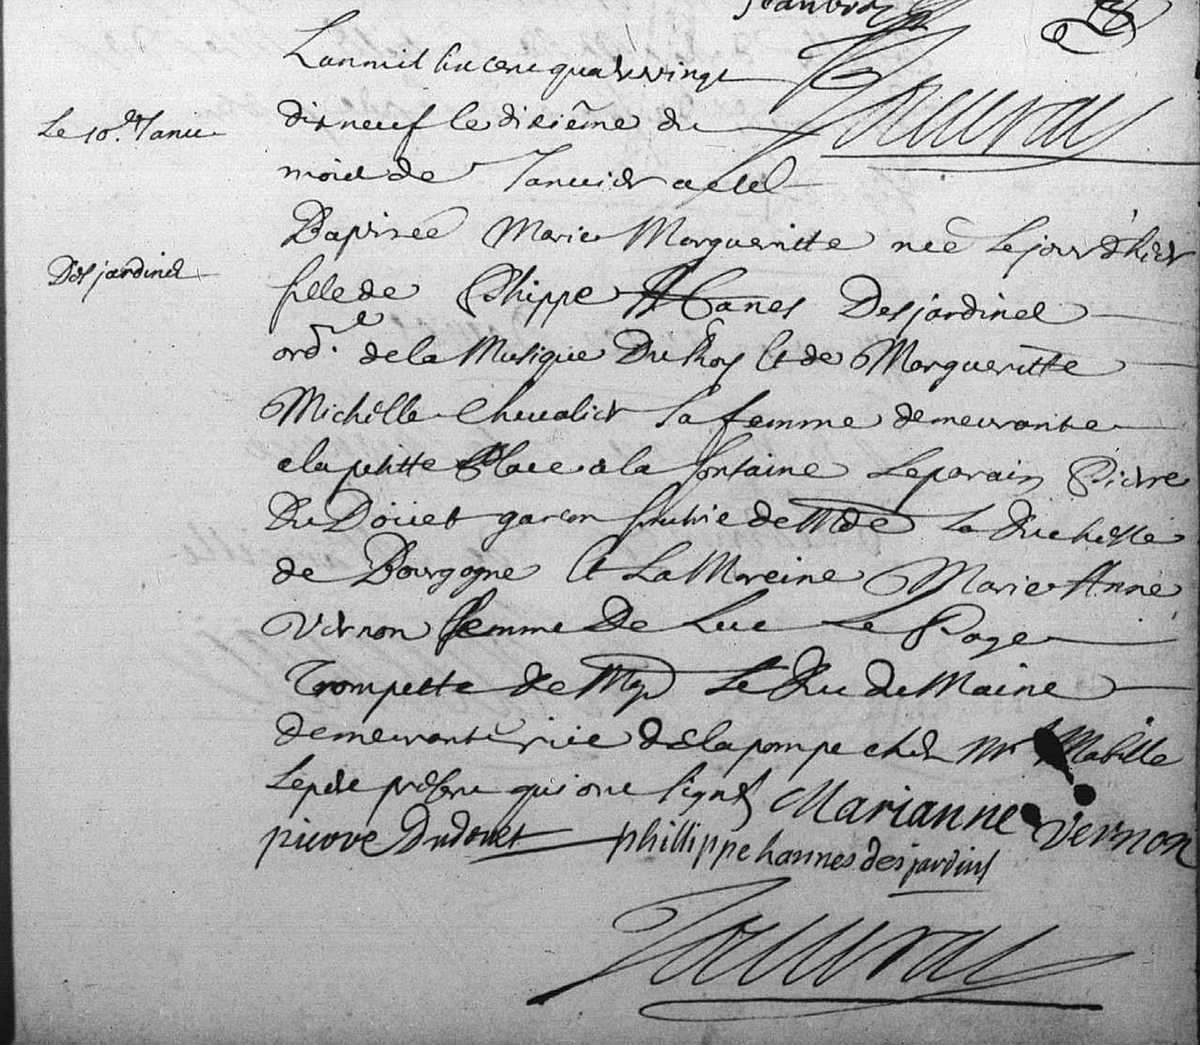 Lan mil six cent quatre vingt
dix neuf le dixiême du
Le 10.e Janu
mois de Janvier a esté
Baptisée Marie Margueritte neé le jour d'hier
Desjardines
fille de Phippe Hanes Desjardines
ord.re de la Musique Du Roy et de Margueritte
Michelle Chevalier sa femme demeurante
a la petitte Place a la fontaine Le parain Pierre
Du Doüet garcon fruitie de Mde La Duchesse
de Bourgogne et La Mareine Marie Anne
Vernon femme De Luc Le Page
Trompette de Mgr Le Duc du Maine
demeurante rüe de la pompe chez Mr Mabille
Le pere present qui ont signés Marianne Vernon
pierre Dudouet phillippe hannes desjardins